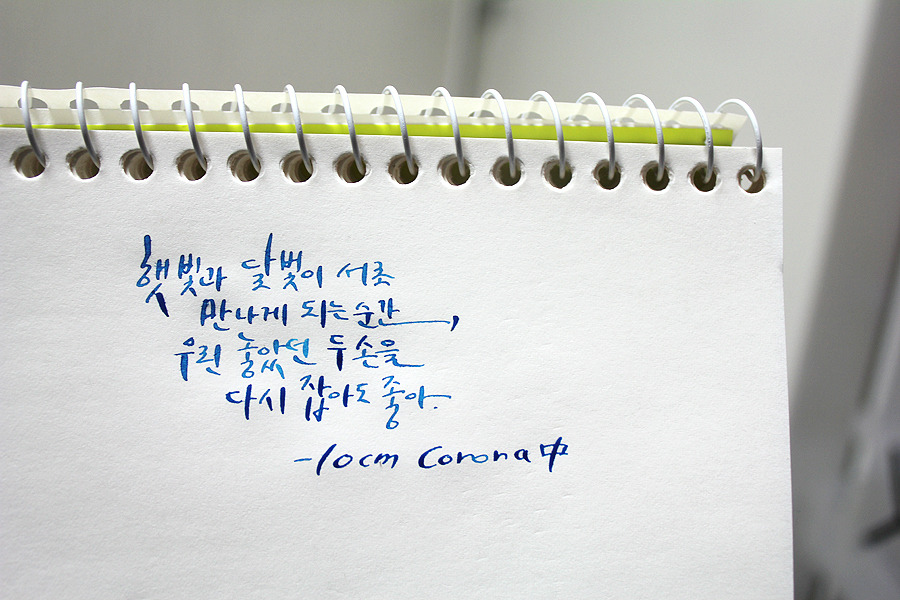 햇빛과 달빛이 서로
만나게 되는 순간,
우린 놓았던 두 손을
다시 잡아도 좋아.
-10cm Corona中